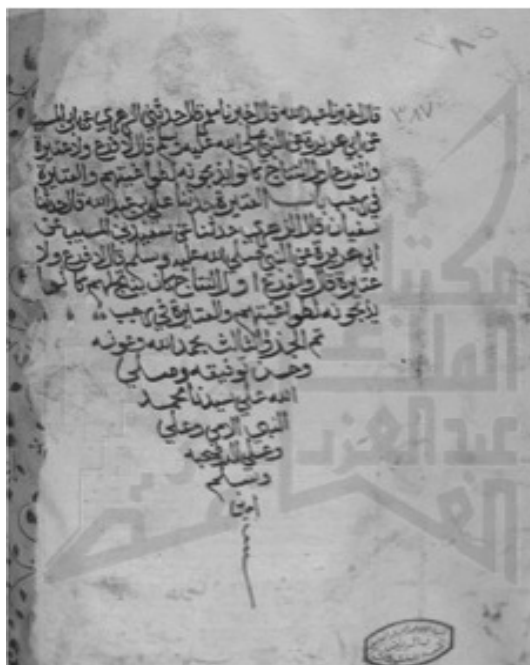 قال اخبرنا عبد الله قال اخبرنا معمر قال حدثني الزهري عن ابن المسيب
عن ابي هريرة عن النبي صلى الله عليه وسلم قال لا فرع ولا عتيرة
والفرع اول النتاج كانوا يذبحونه لطواغيتهم والعتيرة
في رجب باب العتيرة حدثنا علي بن عبد الله قال حدثنا
سفيان قال الزهري حدثنا عن سعيد بن المسيب عن
ابي هريرة عن النبي صلى الله عليه وسلم قال لا فرع ولا
عتيرة قال والفرع اول النتاج كان ينتج لهم كانوا
يذبحونه لطواغيتهم والعتيرة في رجب
تم الجزو الثالث بحمد الله وعونه
وحسن توفيقه وصلى
الله على سيدنا محمد
النبي الامي وعلى
وعلى اله وصحبه
وسلم
امين
٣٨٧
مكتبة
الملك
عبد العزيز
العامة